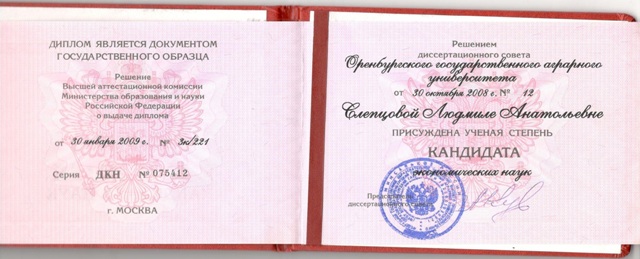 ДИПЛОМ ЯВЛЯЕТСЯ ДОКУМЕНТОМ
ГОСУДАРСТВЕННОГО ОБРАЗЦА
Решение
Высшей аттестационной комиссии
Министерства образования и науки
Российской Федерации
о выдаче диплома
от 30 января 2009 г. № 3к/221
Серия ДКН № 075412
г. МОСКВА
Решением
диссертационного совета
Оренбургского государственного аграрного
университета
от 30 октября 2008 г. № 12
Слепцовой Людмиле Анатольевне
ПРИСУЖДЕНА УЧЕНАЯ СТЕПЕНЬ
КАНДИДАТА
экономических наук
Председатель
диссертационного совета